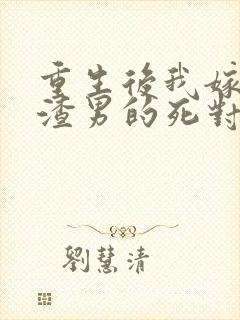 重生後我嫁
渣男的死對
劉慧清